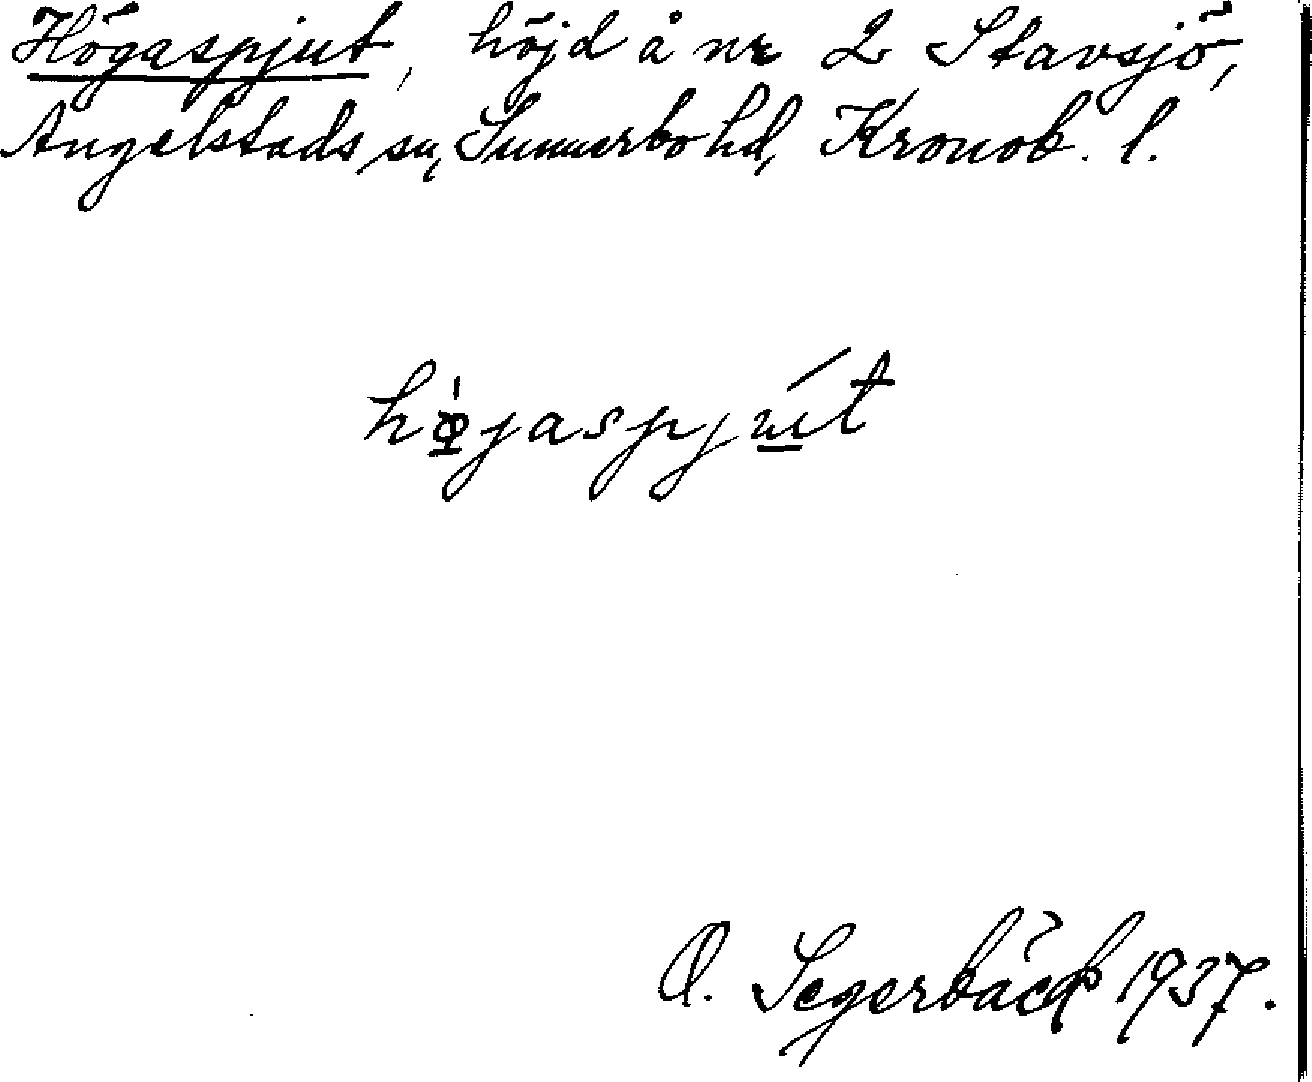 Högaspjut, höjd å nr 2 Stavsjö,
Angelstads sn, Sunnerbo hd, Kronob. l.
hø̀jaspjút
O. Segerbäck 1937.